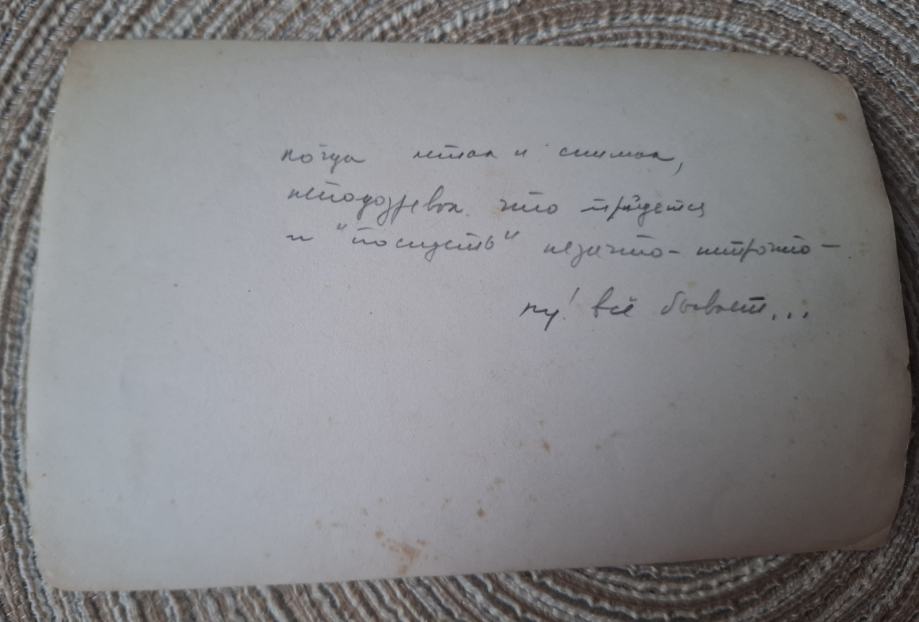 когда летал и снимал,
неподозревал что прийдется
и "посидеть" незачто-нипрочто-
ну! всё бывает...